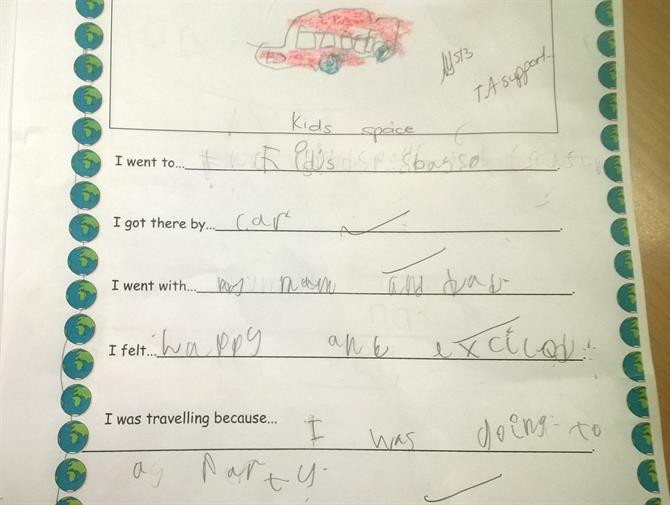 TA support.
Kids space
I went to... Kids sbasso
I got there by... car
I went with... my mam and dad.
I felt... happy and exticod!
I was travelling because...
I was going to
a party.